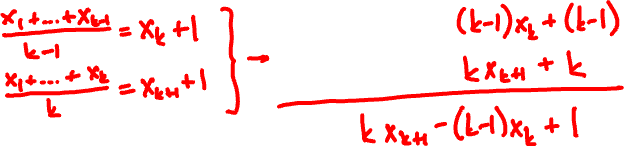 (x₁+...+xₖ₋₁)/(k-1) = xₖ+1
(x₁+...+xₖ)/k = xₖ₊₁+1
} →
(k-1)xₖ+(k-1)
k xₖ₊₁ + k
k xₖ₊₁ - (k-1)xₖ + 1